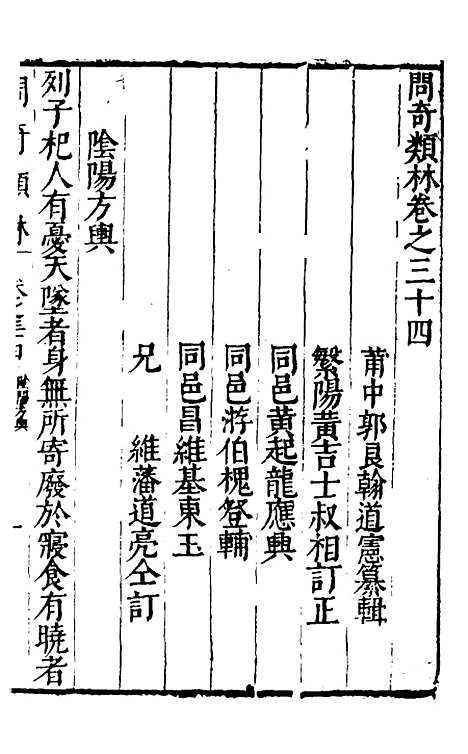 問奇類林卷之三十四
莆中郭良翰道憲纂輯
繁陽黃吉士叔相訂正
同邑黃起龍應興
同邑游伯槐登輔
同邑昌維基東玉
兄　維藩道亮仝訂
陰陽方輿
列子杞人有憂天墜者身無所寄廢於寢食有曉者
問奇類林 卷之三十四 陰陽方輿 一